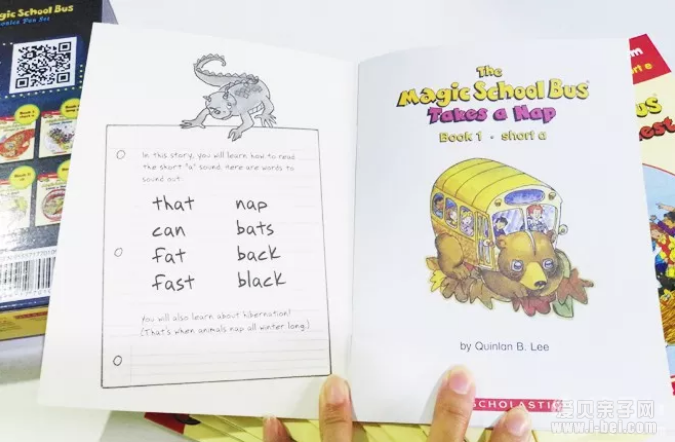 In this story, you will learn how to read
the short "a" sound. Here are words to
sound out.
that nap
can bats
fat back
fast black
You will also learn about hibernation!
(That's when animals nap all winter long.)
The
Magic School Bus
Takes a Nap
Book 1 • short a
by Quinlan B. Lee
SCHOLASTIC
爱贝亲子网
www.i-bei.com